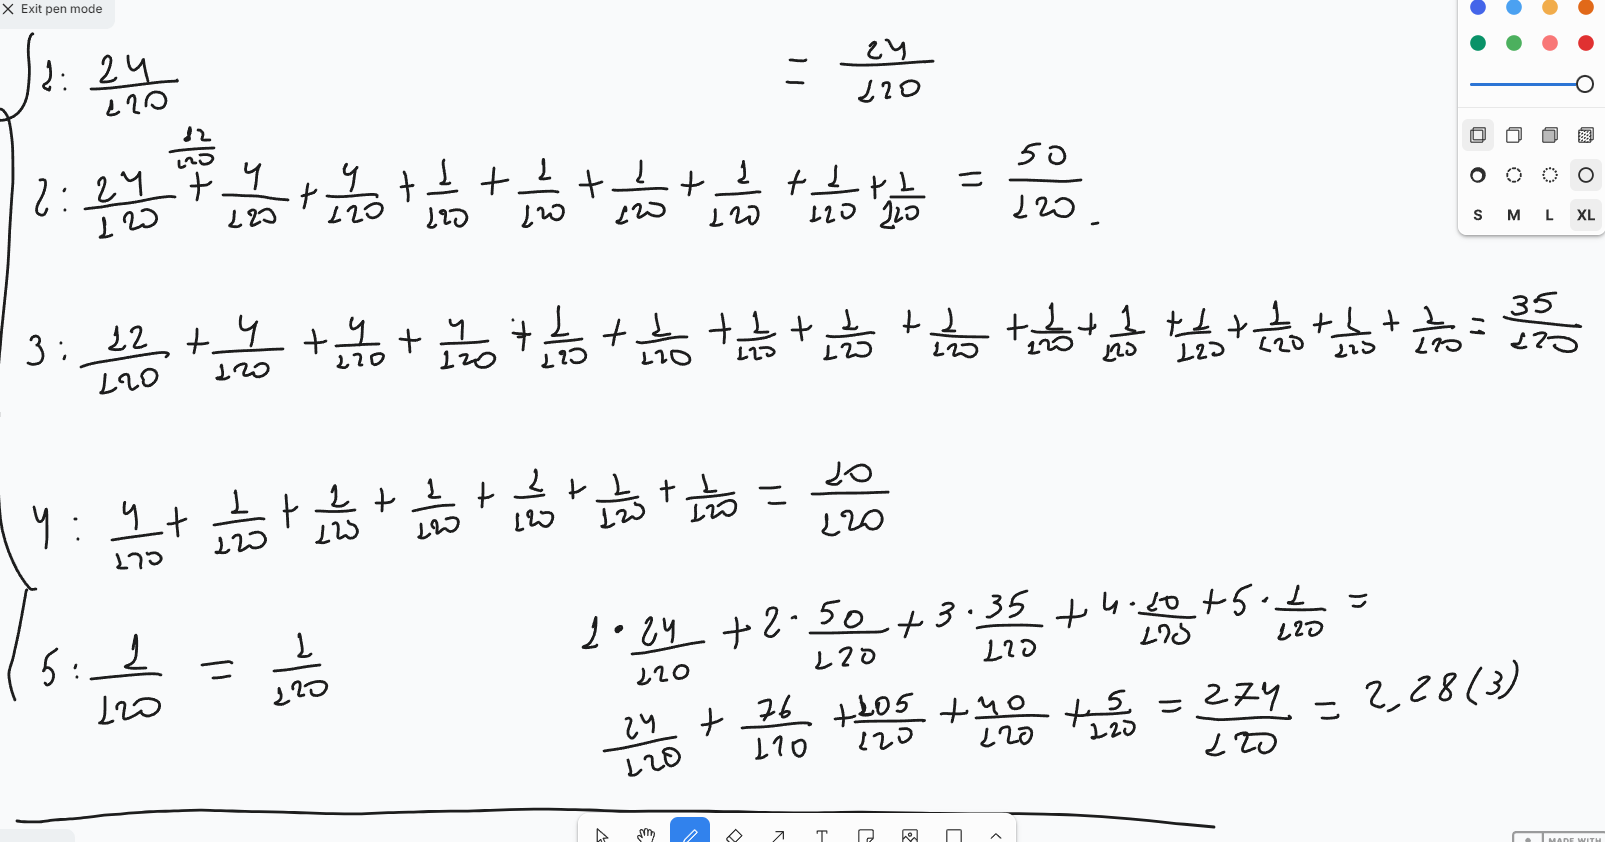 Exit pen mode
1: 24/120 = 24/120
2: 24/120 + 12/120 + 4/120 + 4/120 + 1/120 + 1/120 + 1/120 + 1/120 + 1/120 + 1/120 = 50/120
3: 12/120 + 4/120 + 4/120 + 4/120 + 1/120 + 1/120 + 1/120 + 1/120 + 1/120 + 1/120 + 1/120 + 1/120 + 1/120 + 1/120 + 1/120 = 35/120
4: 4/120 + 1/120 + 1/120 + 1/120 + 1/120 + 1/120 + 1/120 = 10/120
5: 1/120 = 1/120
1 · 24/120 + 2 · 50/120 + 3 · 35/120 + 4 · 10/120 + 5 · 1/120 =
24/120 + 76/120 + 105/120 + 40/120 + 5/120 = 274/120 = 2,28(3)
S M L XL
T
MADE WITH